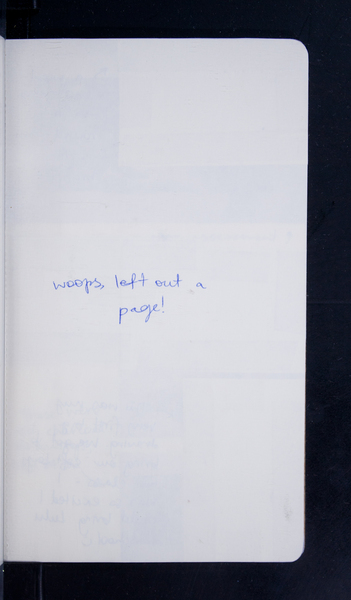 woops, left out a
page!